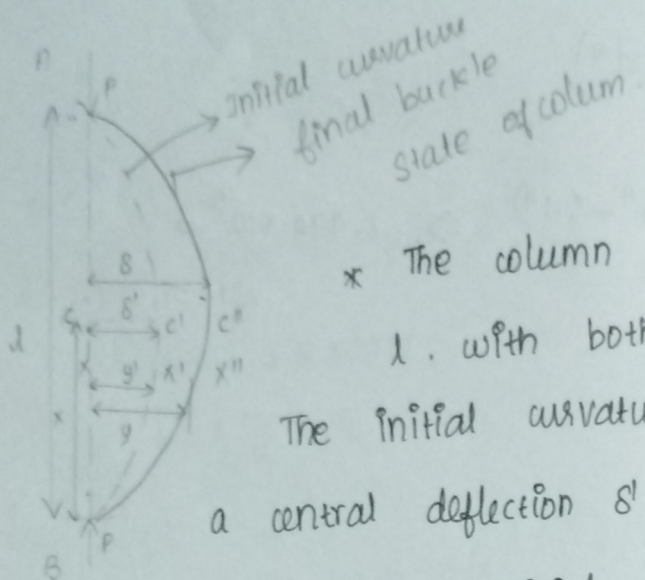 A
P
Initial curvature
final buckle
state of colum
δ
δ'
C C' C"
l
x
y' x' x"
x
y
P
B
* The column
l . with both
The initial curvatu
a central deflection δ'